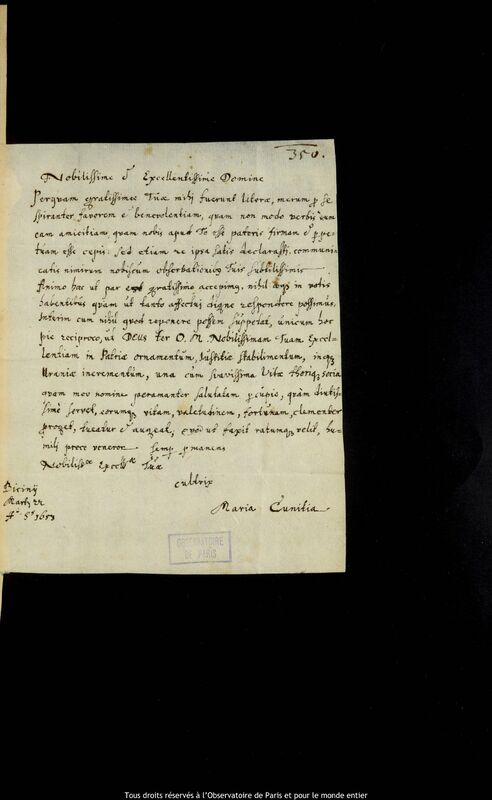 350.
Nobilissime & Excellentissime Domine
Perquam gratissimae Tuae mihi fuerunt literae, meram p se
spirantes favorem e benevolentiam, quam non modo verbis
eam amicitiam, quam nobis apud Te esse pateris firmam & p pe-
tuam esse cupis: sed etiam re ipsa satis declarasti, communi
catis nimirum nobiscum observationibus Tuis subtilissimis
Animo hac ut par gratissimo accepimq, nihil in votis
habentibus quam ut tanto affectui digne respondere possimus.
Interim cum nihil quod reponere possem suppetat, unicum hoc
pie reciproco, ut Deus ter O. M. Nobilissimam Tuam Excel-
lentiam in Patriae ornamentum, Justitiae stabilimentum, inq
Uraniae incrementum, una cum suavissima Vitae thoriq socia
quam meo nomine peramanter salutatam p cupio, quam diutis-
sime servet, eorumq vitam, valetudinem, fortunam, clementer
proget, tueatur & augeat, quod ut faxit ratumq velit, hu-
mili prece veneror. Semp pmanens
Nobiliss.ae Excell.ae Tuae
cultrix
Maria Cunitia
Bicinij
Martij 22
A° 1653
OBSERVATOIRE
DE PARIS
Tous droits réservés à l'Observatoire de Paris et pour le monde entier